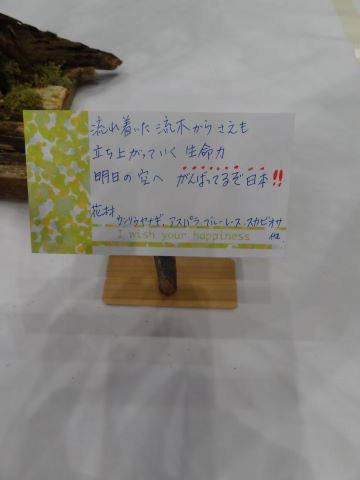 流れ着いた流木からさえも
立ち上がっていく生命力
明日の空へ がんばってるぞ日本!!
花材
ウンリュウヤナギ、アスパラ、ブルーレース、スカビオサ
他
I wish your happiness